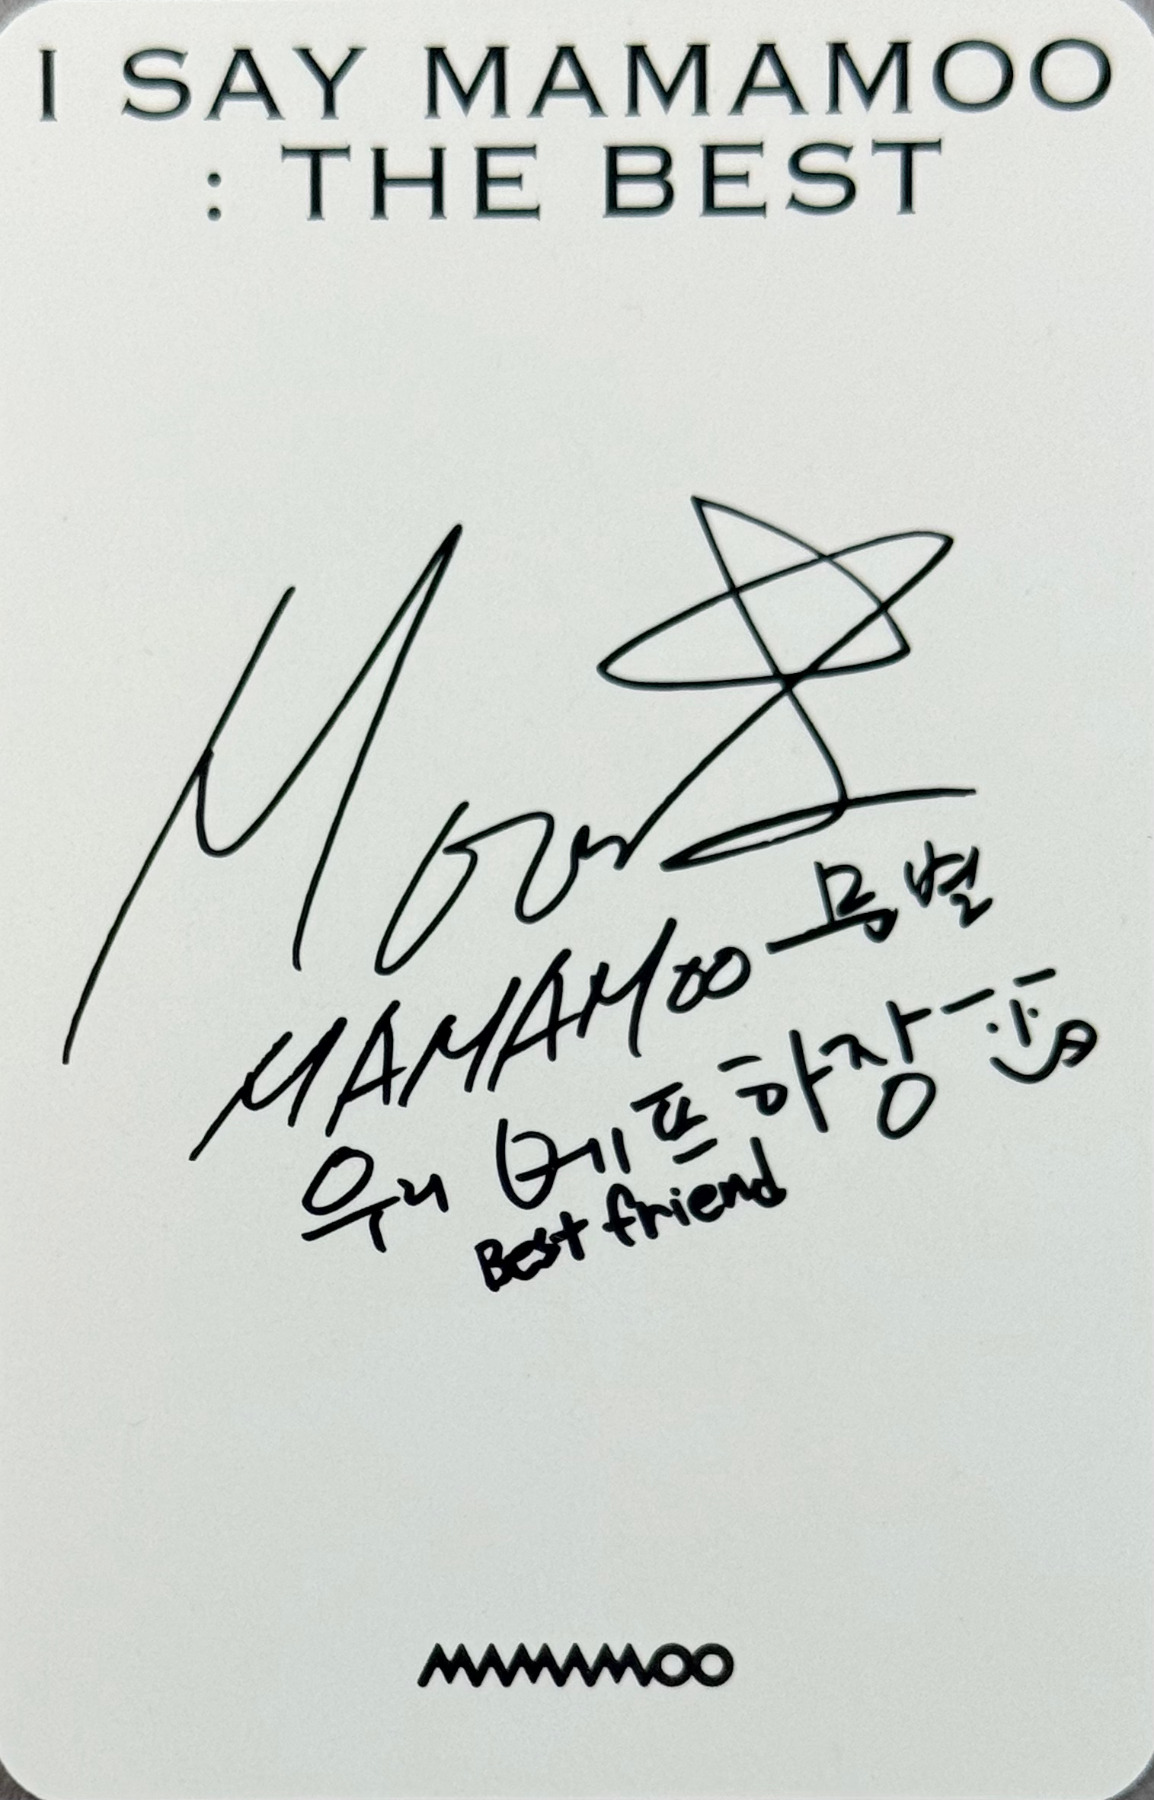 I SAY MAMAMOO
: THE BEST
Moon
MAMAMOO 문별
우리 베프하장~
Best friend
MAMAMOO